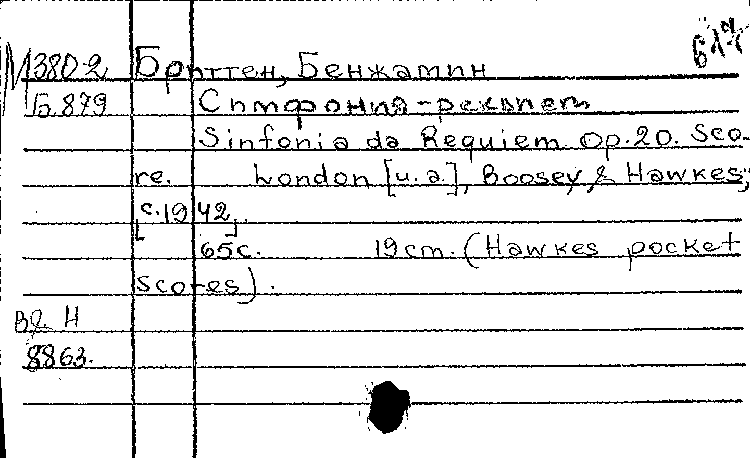 М 380-2 Бриттен, Бенжамин
Б.879 Симфония-реквием
Sinfonia da Requiem Op.20. Sco-
re. London [u.a.], Boosey & Hawkes,
[c.1942].
65с. 19cm. (Hawkes pocket
scores).
Н
8863.